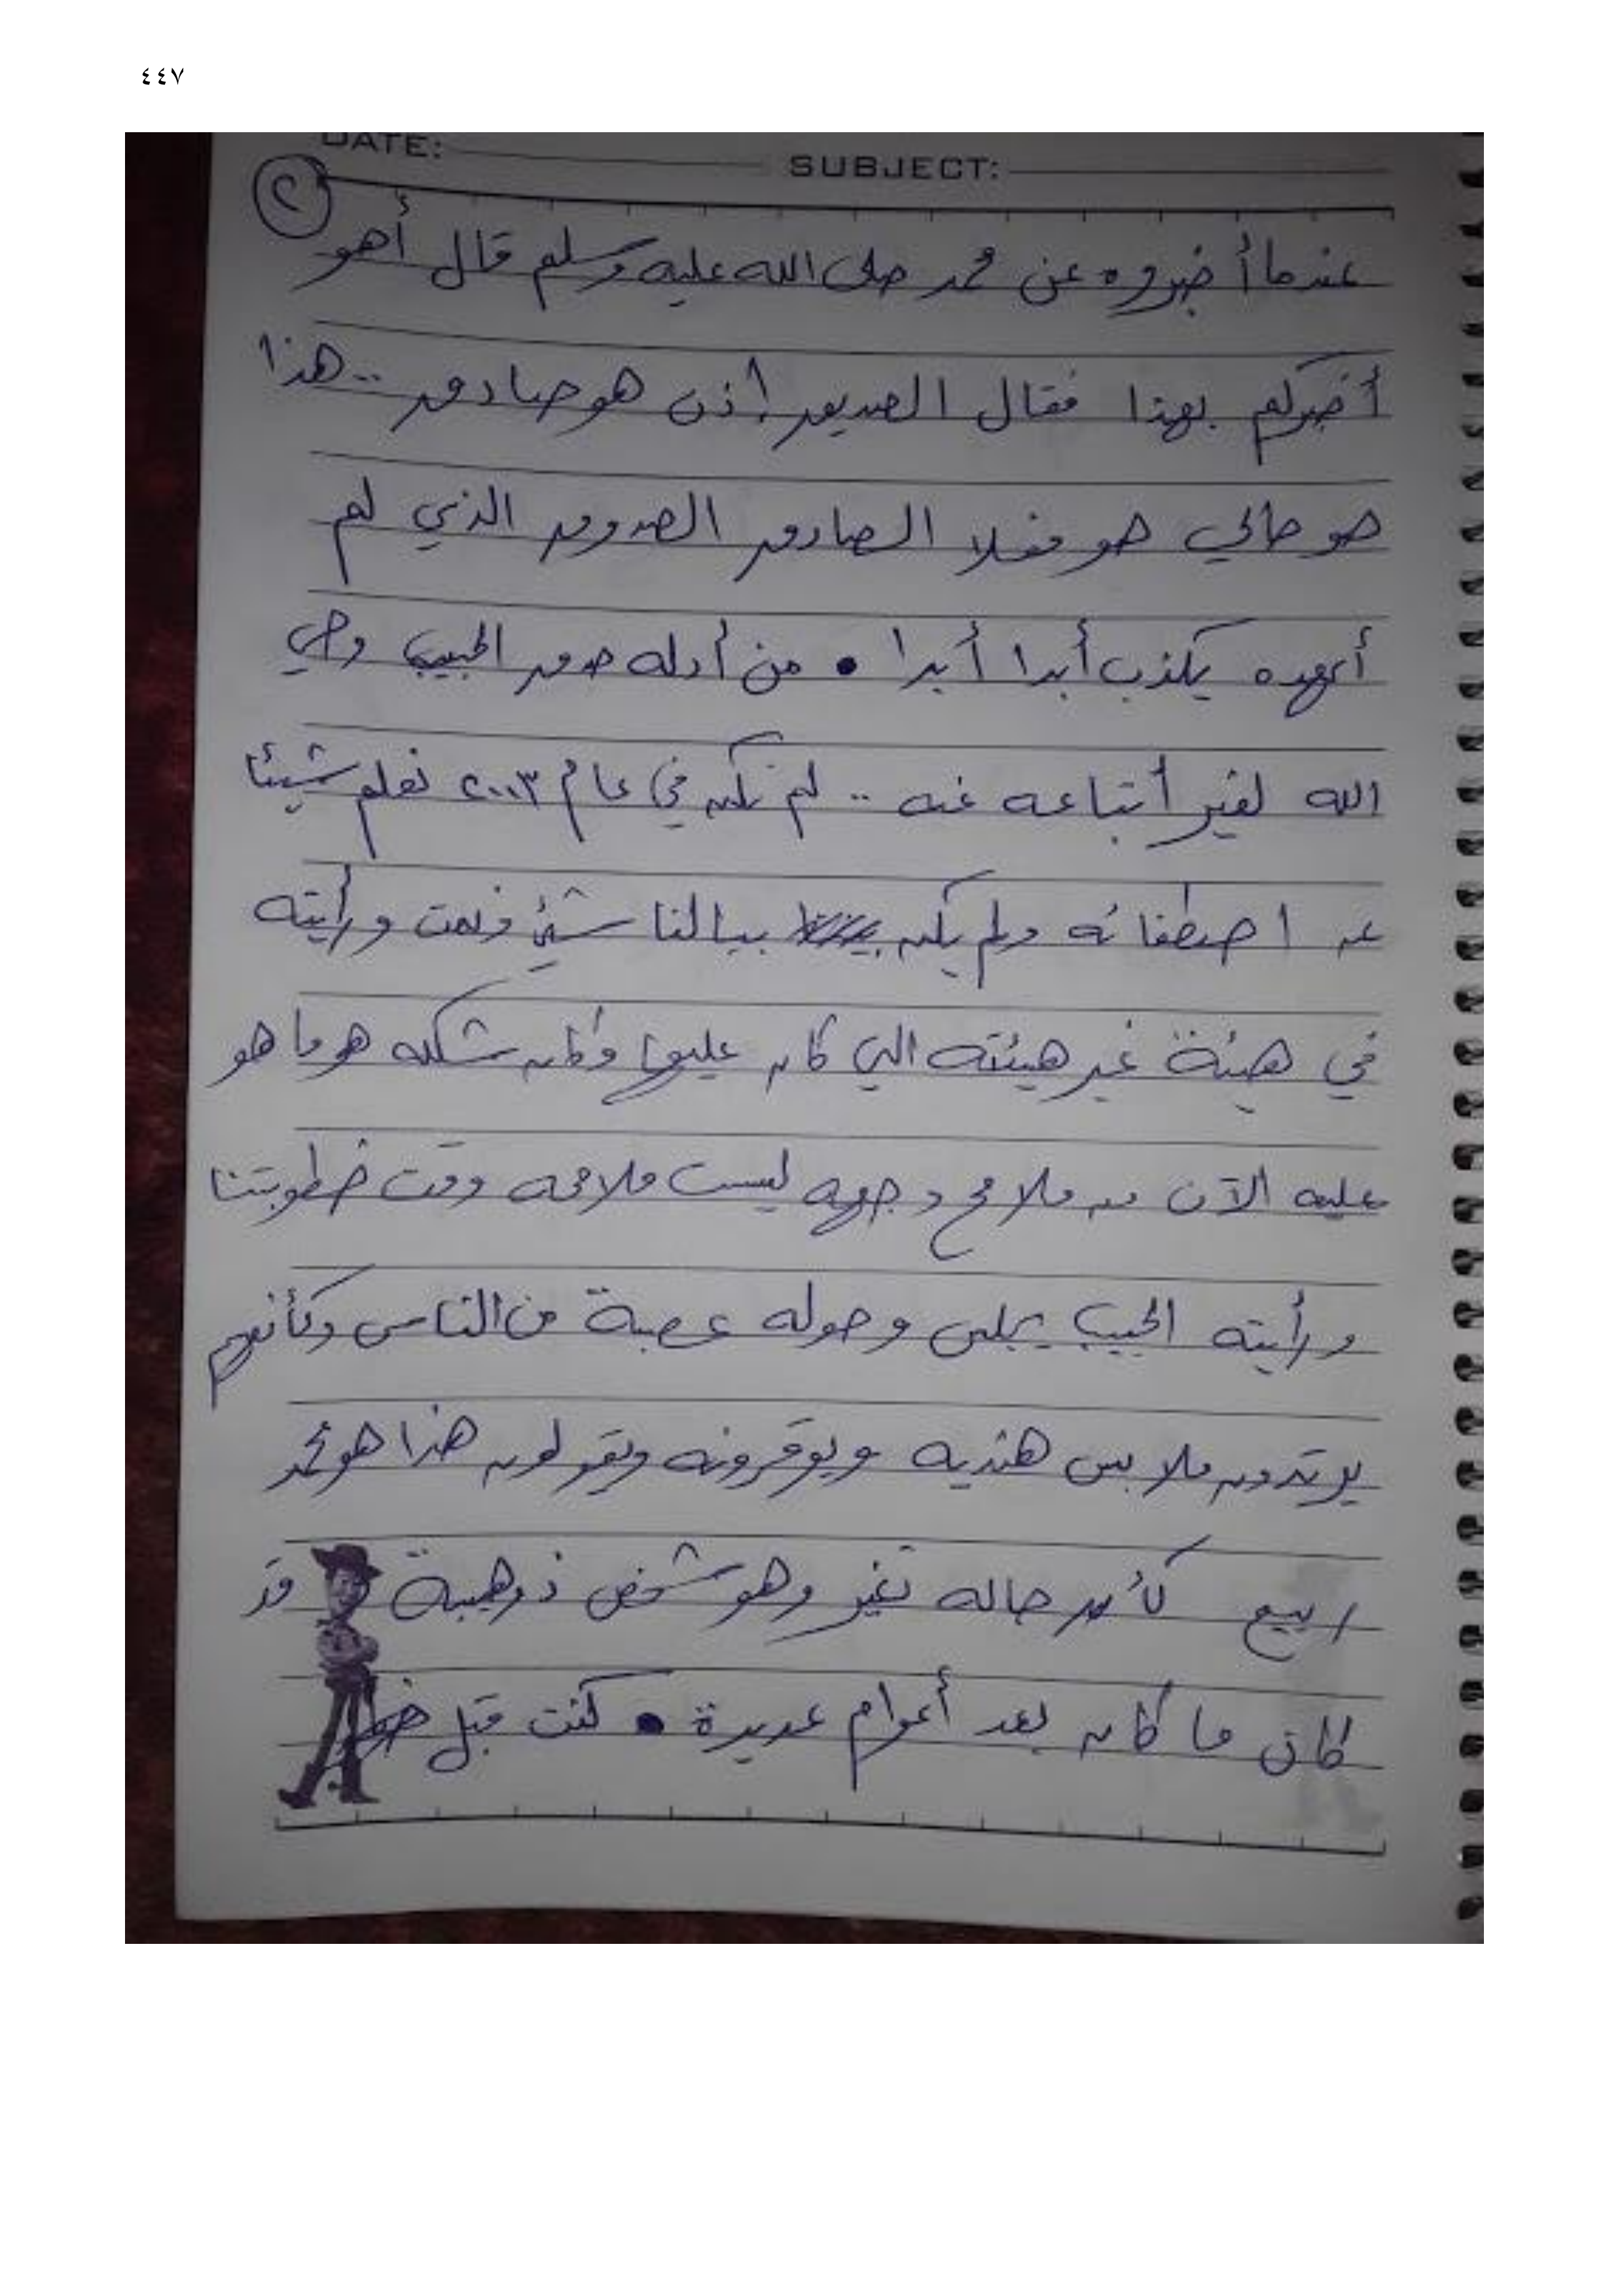 ٤٤٧
DATE: SUBJECT:
٢
عندما أخبروه عن محمد صلى الله عليه وسلم قال أهو
أخبركم بهذا فقال الصديق إذن هو صادق .. هذا
هو حالي هو فعلا الصادق الصدوق الذي لم
أعهده يكذب أبدا أبدا • من أدله صدق الحبيب وحي
الله لغير أتباعه عنه .. لم نكن في عام ٢٠٠٣ نعلم شيئا
عن اصطفائه ولم يكن ببالنا شئ ونمت ورأيته
في هيئة غير هيئته التي كان عليها وكان شكله هو ما هو
عليه الآن من ملامح وجهه ليست ملامحه وقت خطوبتنا
ورأيته الحبيب يجلس وحوله عصبة من الناس وكأنهم
يرتدون ملابس هنديه ويوقرونه ويقولون هذا هو محمد
ربيع كأن حاله تغير وهو شخص ذو هيبة قد
كان ما كان بعد أعوام عديدة • كنت قبل